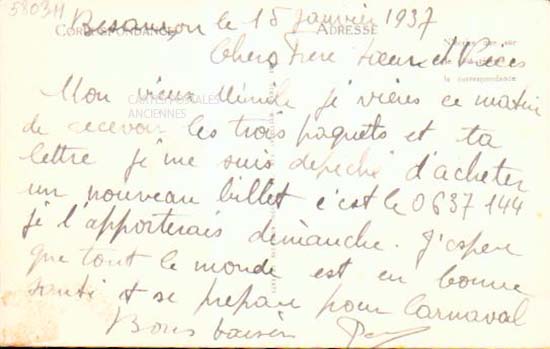 58034
Besançon le 18 Janvier 1937
CORRESPONDANCE ADRESSE
Chers Frère soeur et Nièces
la correspondance
Mon vieux je viens ce matin
CARTES POSTALES
ANCIENNES
de recevoir les trois paquets et ta
lettre je me suis depeché d'acheter
un nouveau billet c'est le 0637144
je l'apporterais demanche. J'espere
que tout le monde est en bonne
santé et se prepare pour Carnaval
Bons baisers